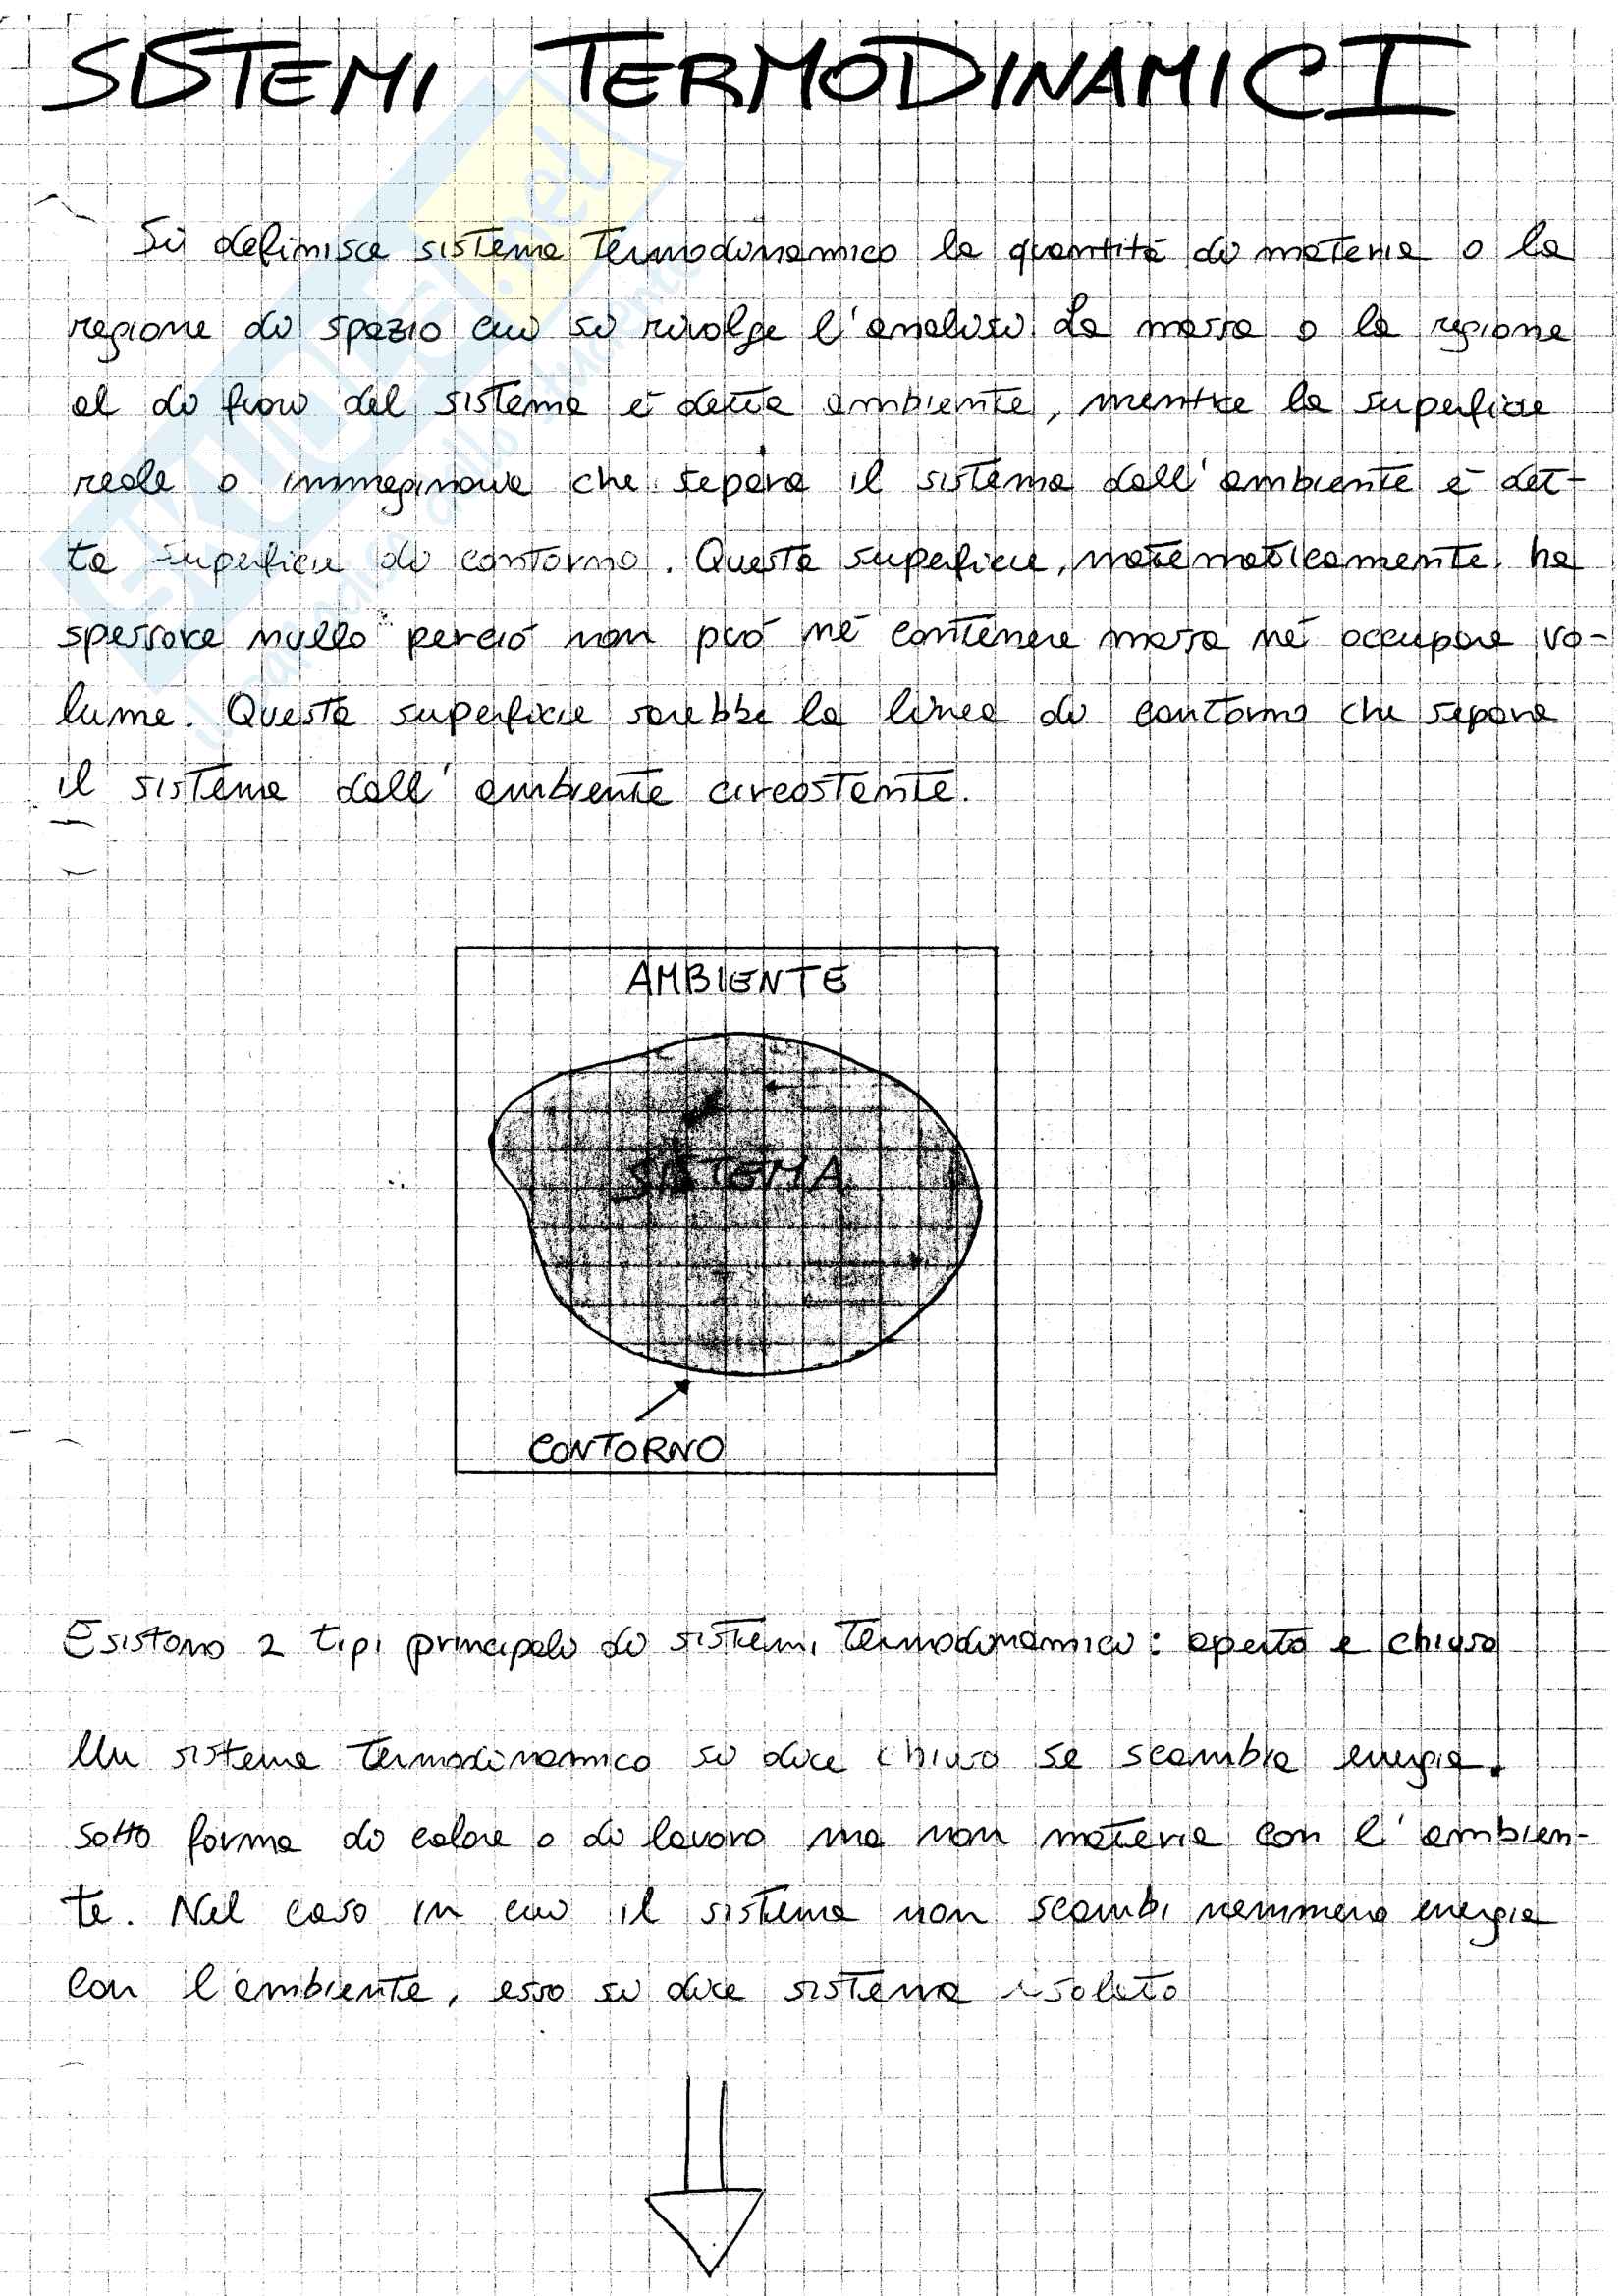 SISTEMI TERMODINAMICI
Si definisce sistema termodinamico la quantità di materia o la
regione di spazio cui si rivolge l'analisi. La massa o la regione
al di fuori del sistema è detta ambiente, mentre la superficie
reale o immaginaria che separa il sistema dall'ambiente è det-
ta superficie di contorno. Questa superficie, matematicamente, ha
spessore nullo perciò non può né contenere massa né occupare vo-
lume. Questa superficie sarebbe la linea di contorno che separa
il sistema dall'ambiente circostante.
AMBIENTE
SISTEMA
CONTORNO
Esistono 2 tipi principali di sistemi termodinamici: aperto e chiuso
Un sistema termodinamico si dice chiuso se scambia energia
sotto forma di calore o di lavoro ma non materia con l'ambien-
te. Nel caso in cui il sistema non scambi nemmeno energia
con l'ambiente, esso si dice sistema isolato